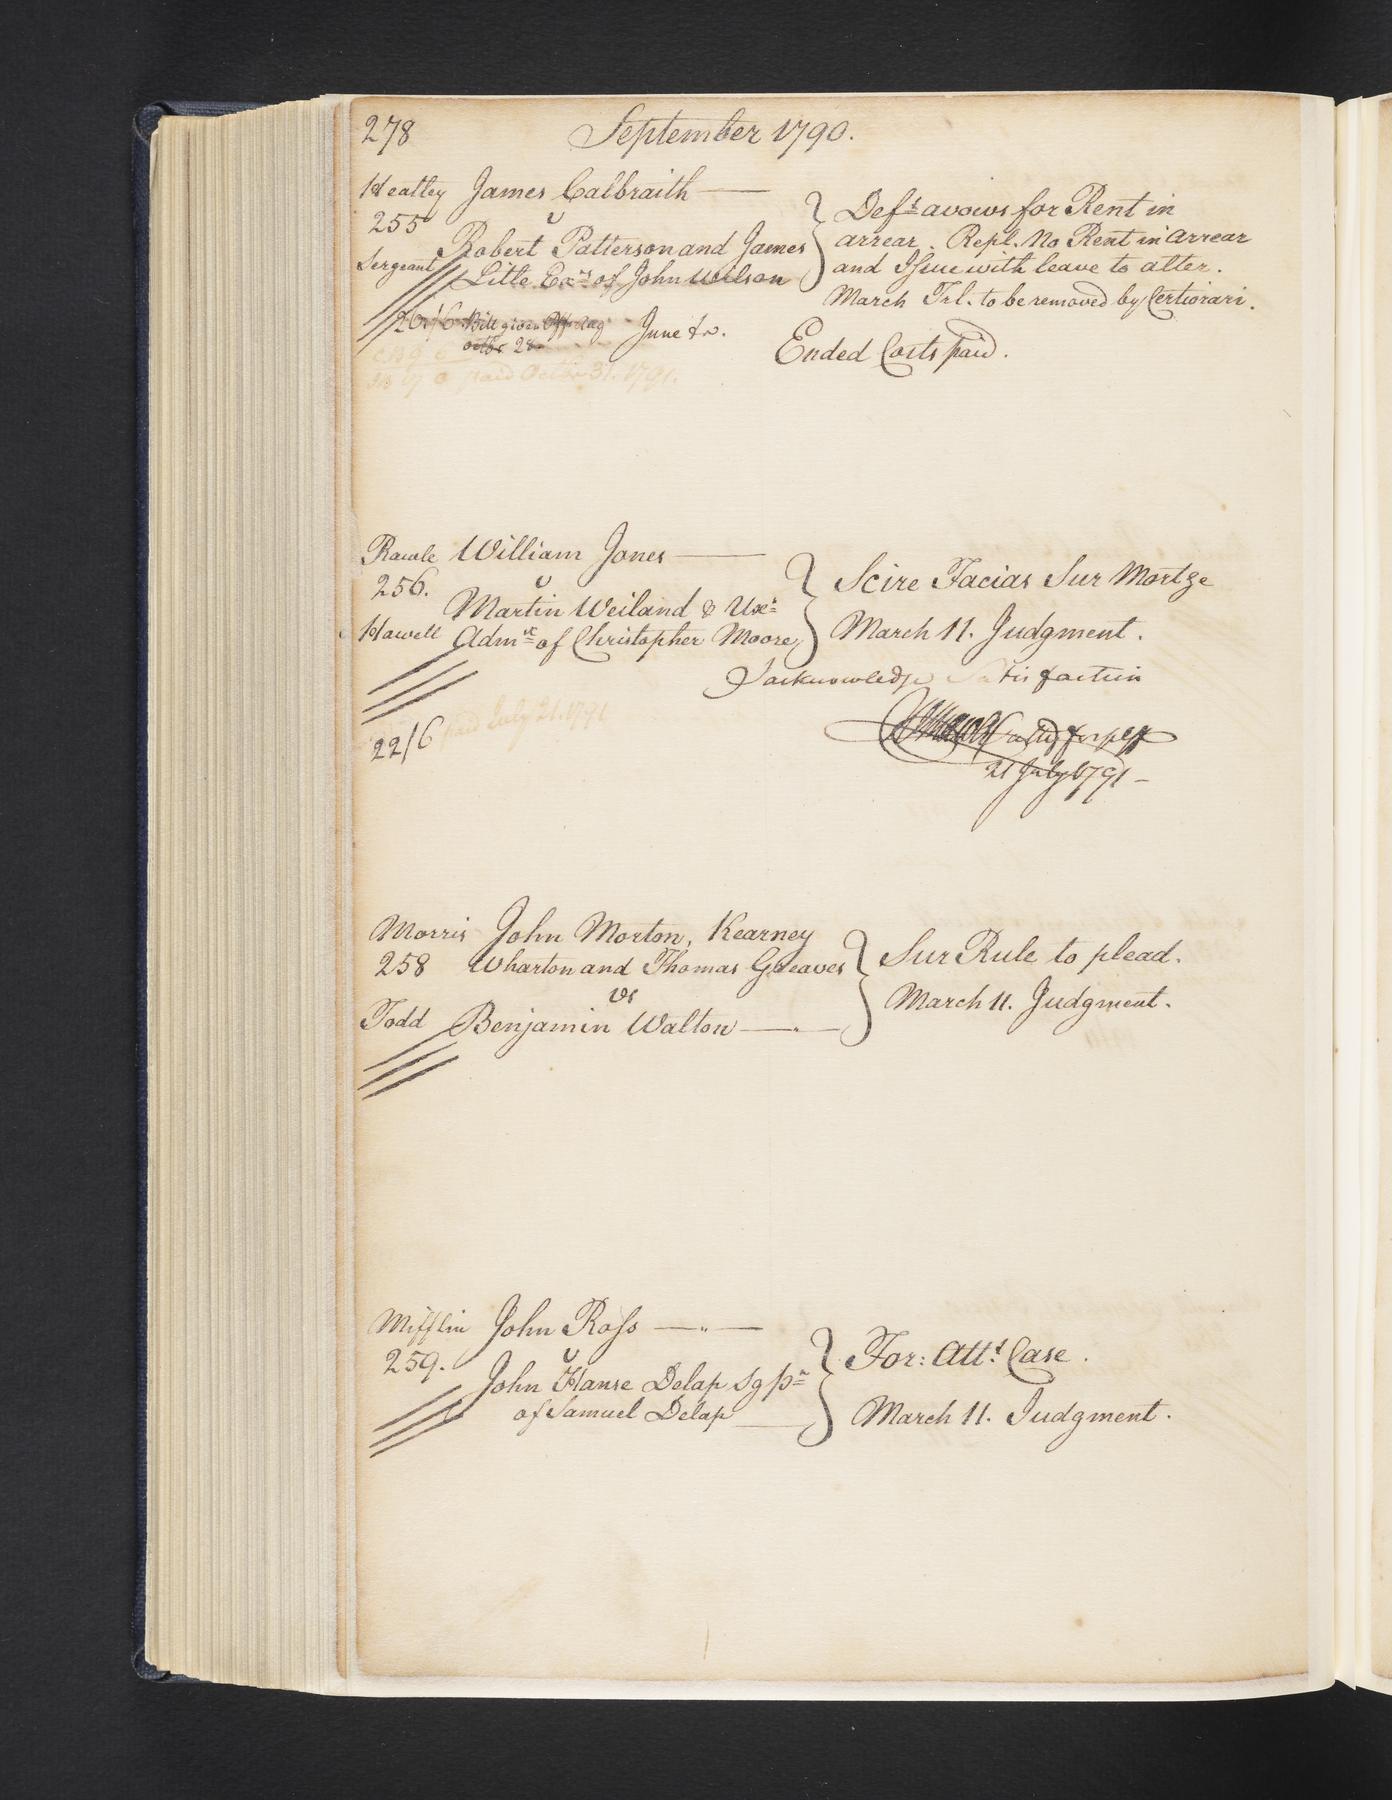 278 September 1790.
Heatley James Calbraith
255 v
Sergeant Robert Patterson and James
Little Exrs of John Wilson
Defts avows for Rent in
arrear. Repl. No Rent in Arrear
and Issue with leave to alter.
March Trl. to be removed by Certiorari.
June tr.
Ended Costs paid.
26/6 Bill given Off
octbr 28
paid Octbr 31. 1791.
Rawle William Jones
256. v
Martin Weiland & Uxr
Howell Admrx of Christopher Moore
Scire Facias Sur Mortge
March 11. Judgment.
I acknowledge Satisfaction
atty for plff
21 July 1791
22/6 paid July 21. 1791
Morris John Morton, Kearney
258 Wharton and Thomas Greaves
vs
Todd Benjamin Walton
Sur Rule to plead.
March 11. Judgment.
Mifflin John Ross
259. v
John Hanse Delap Sg pr
of Samuel Delap
For: Attt Case.
March 11. Judgment.